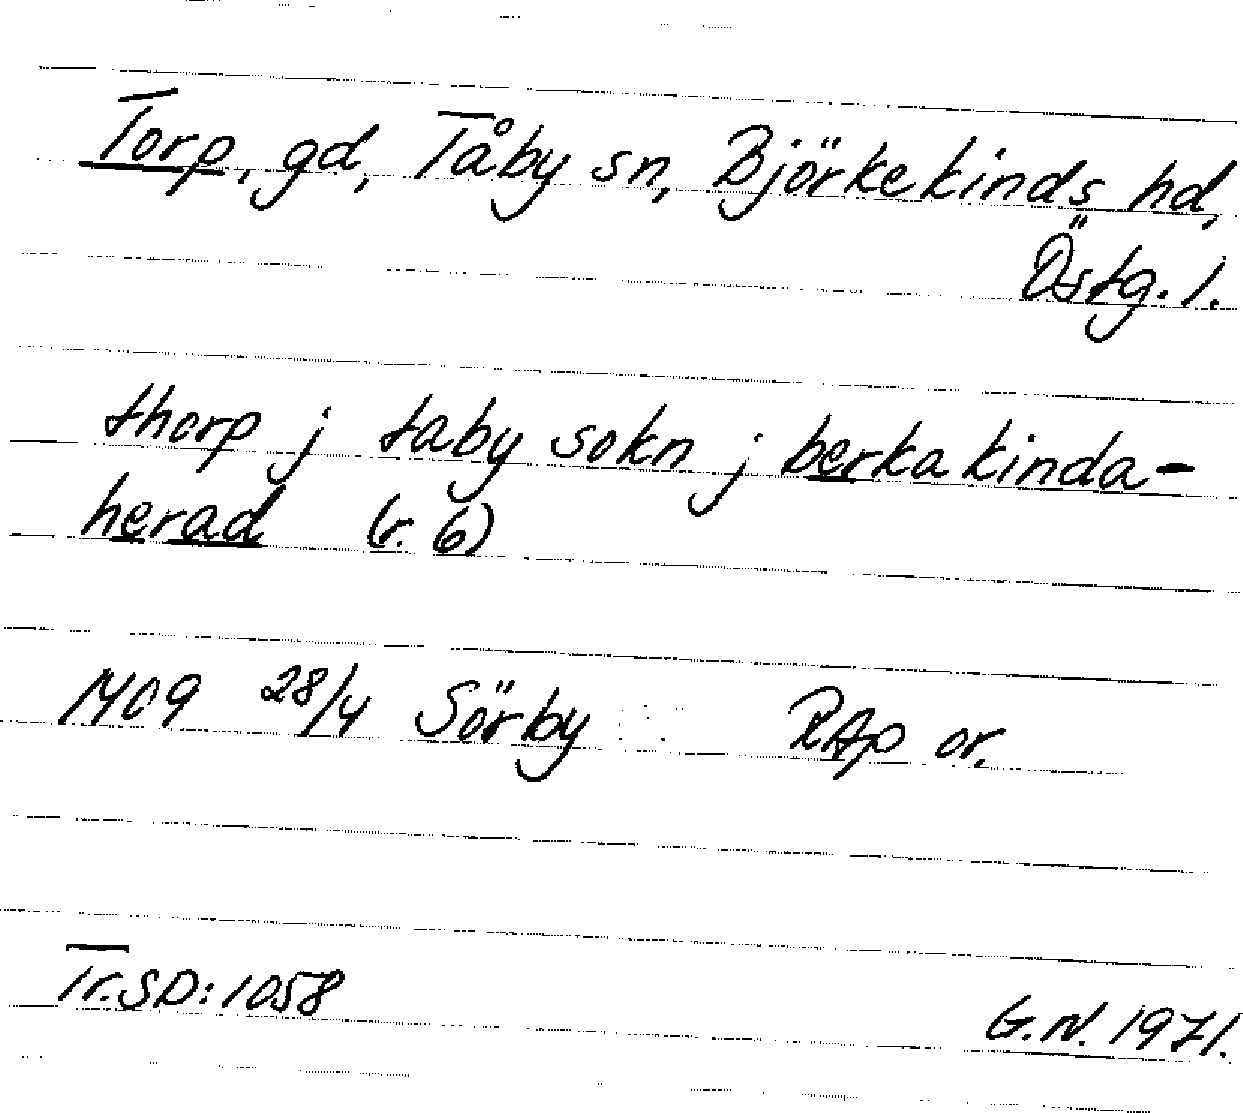 Torp, gd, Tåby sn, Björkekinds hd,
Östg. l.
thorp j taby sokn j berkakinda-
herad (r. 6)
1409 28/4 Sörby RAp or.
Tr. SD: 1058
G.N. 1971.